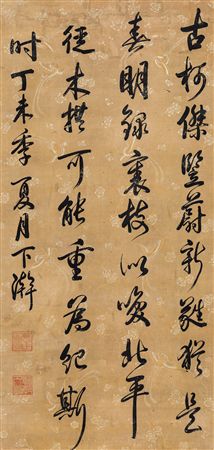 古柯傑豎蔚新蕤猶是
春明錄裏枝似喚北平
從木拱可能重為紀斯
时丁未季夏月下澣